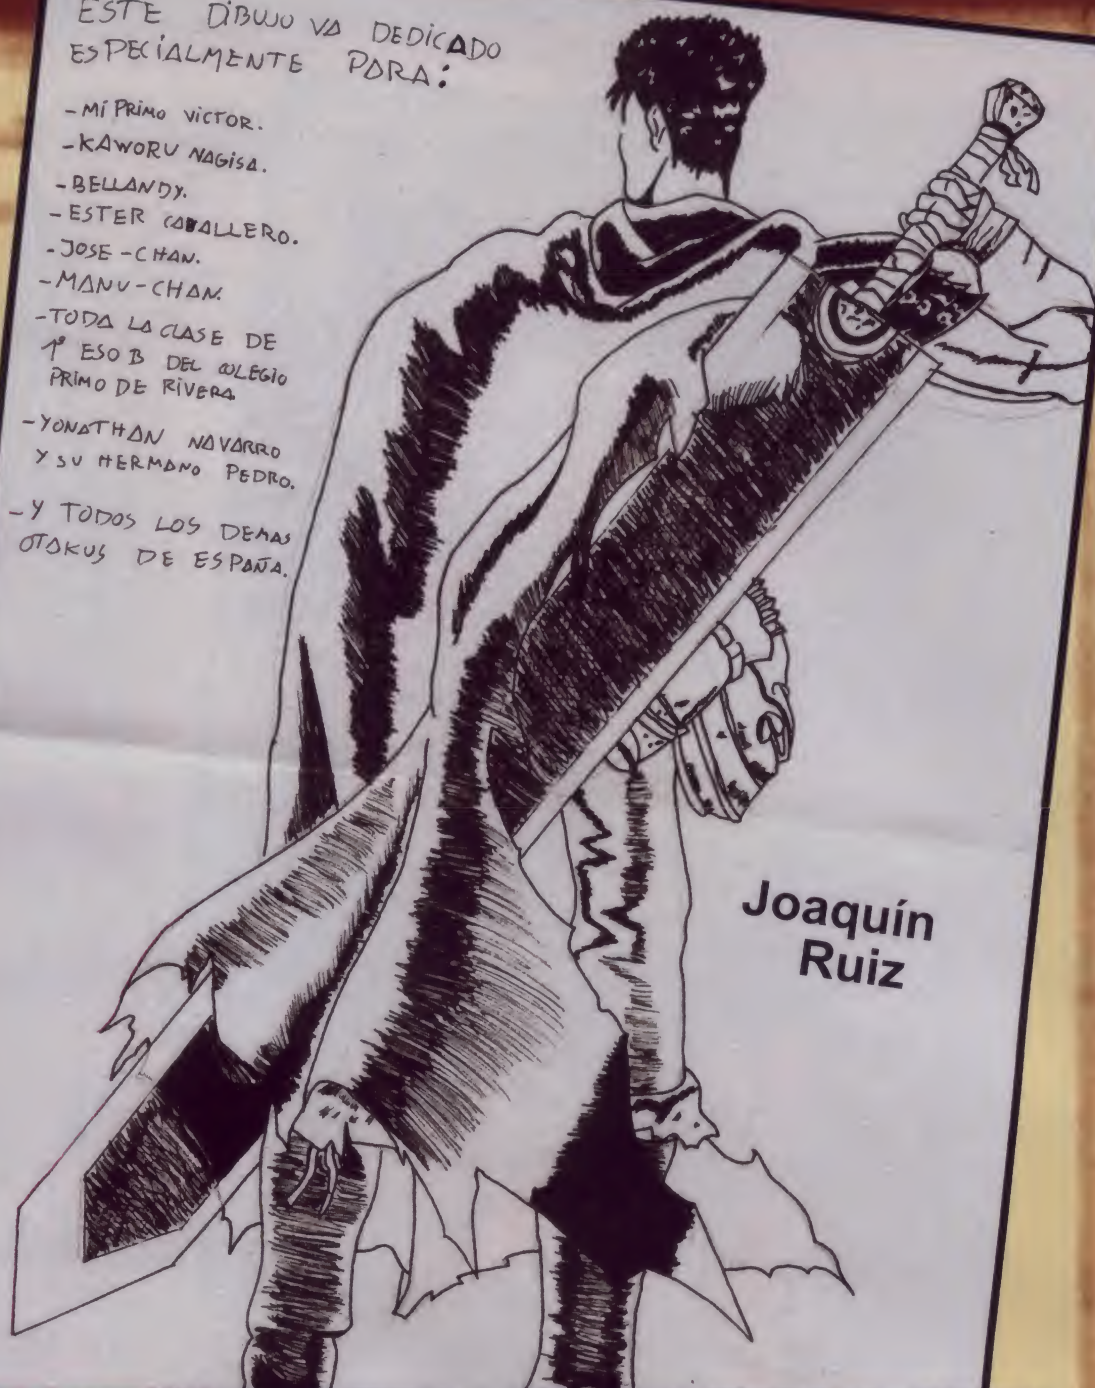 ESTE DIBUJO VA DEDICADO
ESPECIALMENTE PARA:
-MI PRIMO VICTOR.
-KAWORU NAGISA.
-BELLANDY.
-ESTER CABALLERO.
-JOSE-CHAN.
-MANU-CHAN.
-TODA LA CLASE DE
1º ESO B DEL COLEGIO
PRIMO DE RIVERA
-YONATHAN NAVARRO
Y SU HERMANO PEDRO.
-Y TODOS LOS DEMAS
OTAKUS DE ESPAÑA.
Joaquín
Ruiz